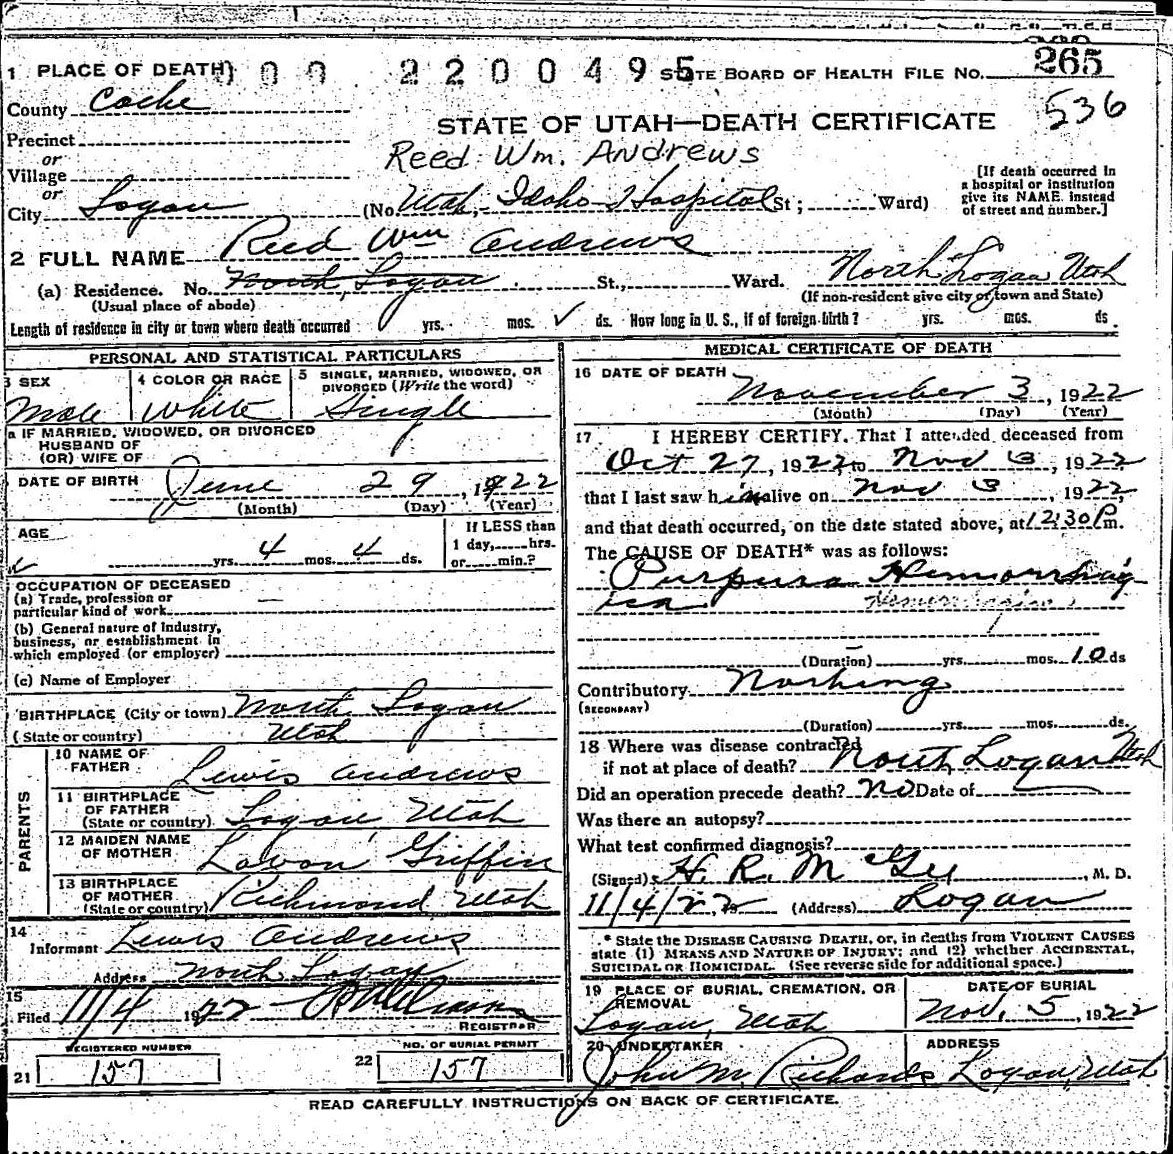 265
1 PLACE OF DEATH 000 2200495 STATE BOARD OF HEALTH FILE NO.
County Cache
536
STATE OF UTAH—DEATH CERTIFICATE
Precinct
or
Village
or
Reed Wm. Andrews
[If death occurred in
a hospital or institution
give its NAME instead
of street and number.]
City Logan (No. Utah-Idaho Hospital St; Ward)
2 FULL NAME Reed Wm Andrews
(a) Residence. No. North Logan St., Ward. North Logan Utah
(Usual place of abode) (If non-resident give city or town and State)
Length of residence in city or town where death occurred yrs. mos. ds. How long in U. S., if of foreign birth? yrs. mos. ds.
PERSONAL AND STATISTICAL PARTICULARS
3 SEX
Male
4 COLOR OR RACE
White
5 SINGLE, MARRIED, WIDOWED, OR
DIVORCED (Write the word)
Single
a IF MARRIED, WIDOWED, OR DIVORCED
HUSBAND OF
(OR) WIFE OF
DATE OF BIRTH June 29, 1922
(Month) (Day) (Year)
AGE
yrs. 4 mos. 4 ds.
If LESS than
1 day, hrs.
or min.?
OCCUPATION OF DECEASED
(a) Trade, profession or
particular kind of work —
(b) General nature of industry,
business, or establishment in
which employed (or employer)
(c) Name of Employer
BIRTHPLACE (City or town) North Logan
(State or country) Utah
PARENTS
10 NAME OF
FATHER Lewis Andrews
11 BIRTHPLACE
OF FATHER
(State or country) Logan Utah
12 MAIDEN NAME
OF MOTHER Lavon Griffin
13 BIRTHPLACE
OF MOTHER
(State or country) Richmond, Utah
14
Informant Lewis Andrews
Address North Logan
15
Filed 11/4 1922
REGISTRAR
REGISTERED NUMBER
21 157
NO. OF BURIAL PERMIT
22 157
MEDICAL CERTIFICATE OF DEATH
16 DATE OF DEATH
November 3, 1922
(Month) (Day) (Year)
17 I HEREBY CERTIFY, That I attended deceased from
Oct 27, 1922 to Nov 3, 1922
that I last saw him alive on Nov 3, 1922,
and that death occurred, on the date stated above, at 12:30 P.m.
The CAUSE OF DEATH* was as follows:
Purpura Hemorrhag
ica
(Duration) yrs. mos. 10 ds
Contributory Nothing
(SECONDARY)
(Duration) yrs. mos. ds.
18 Where was disease contracted
if not at place of death? North Logan Utah
Did an operation precede death? No Date of
Was there an autopsy?
What test confirmed diagnosis?
(Signed) H. R. McGee, M. D.
11/4/22, 19 (Address) Logan
* State the DISEASE CAUSING DEATH, or, in deaths from VIOLENT CAUSES
state (1) MEANS AND NATURE OF INJURY; and (2) whether ACCIDENTAL,
SUICIDAL OR HOMICIDAL. (See reverse side for additional space.)
19 PLACE OF BURIAL, CREMATION, OR
REMOVAL
Logan, Utah
DATE OF BURIAL
Nov. 5, 1922
20 UNDERTAKER
John M. Richards
ADDRESS
Logan, Utah
READ CAREFULLY INSTRUCTIONS ON BACK OF CERTIFICATE.